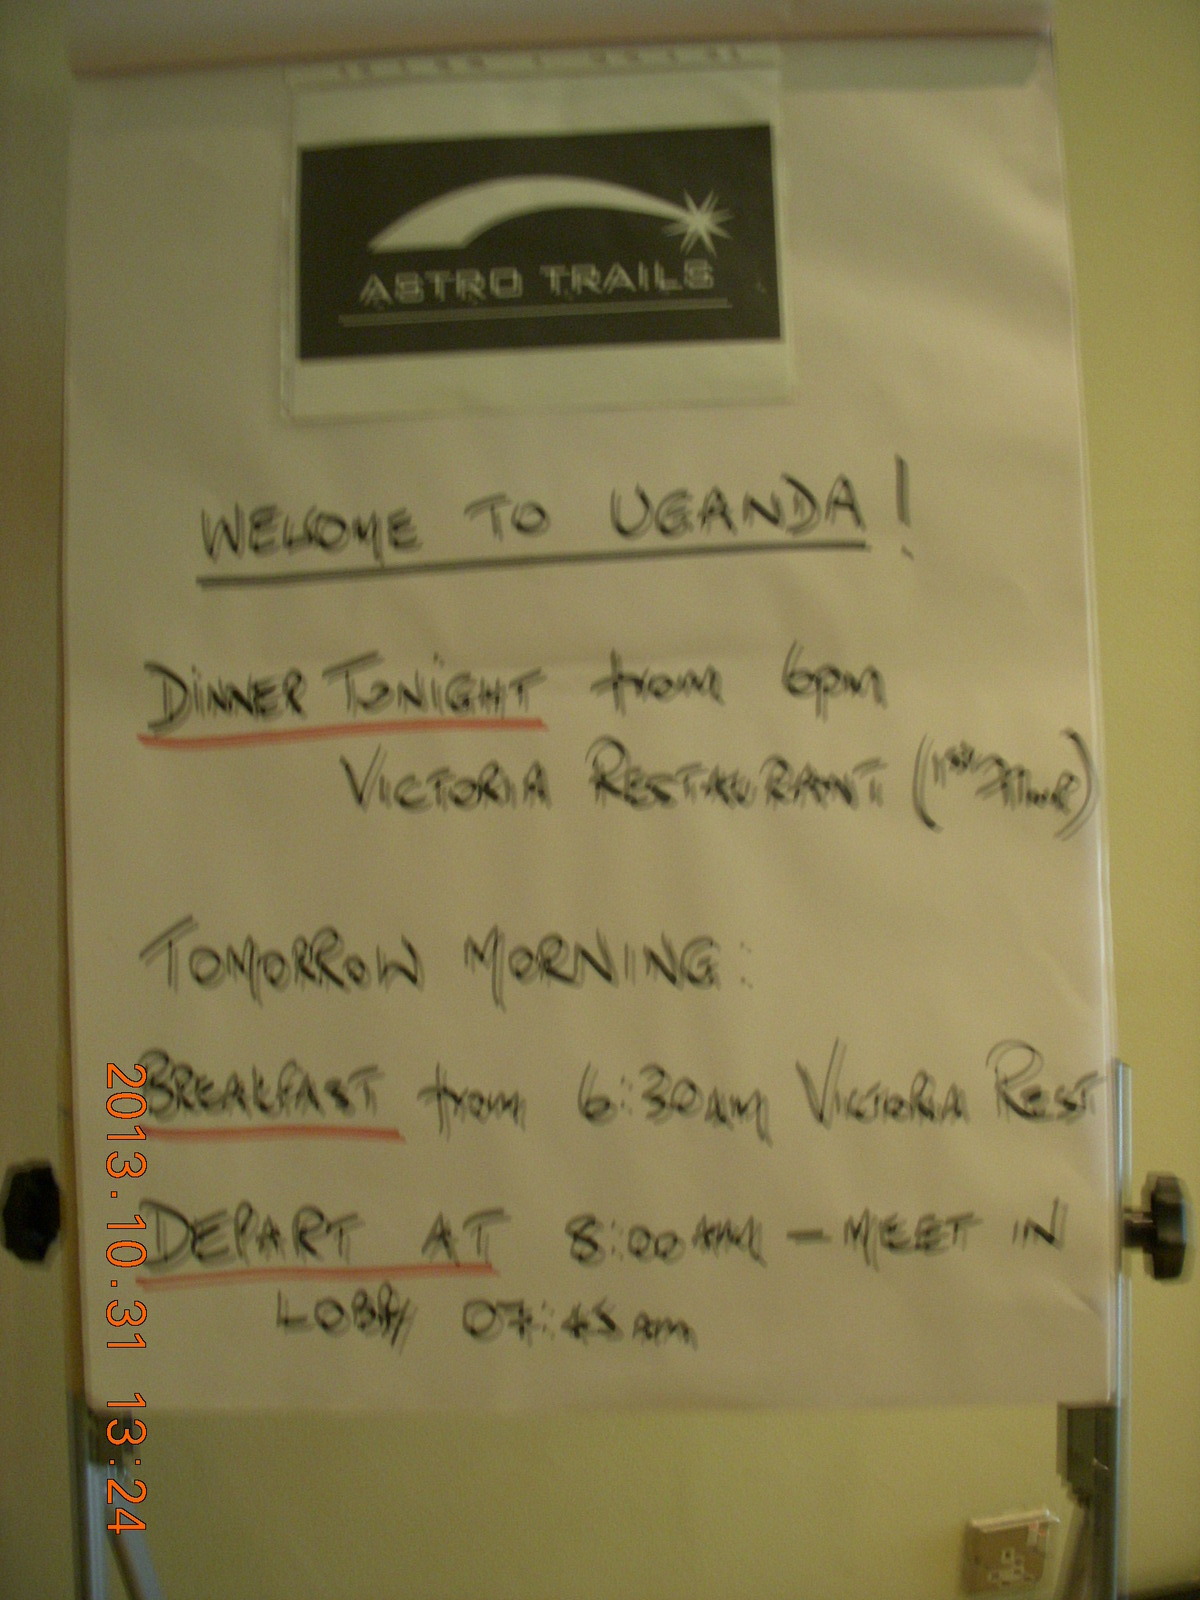 ASTRO TRAILS
WELCOME TO UGANDA!
DINNER TONIGHT from 6pm
VICTORIA RESTAURANT (1st Floor)
TOMORROW MORNING:
BREAKFAST from 6:30am VICTORIA REST
DEPART AT 8:00am - MEET IN
LOBBY 07:45am
2013.10.31 13:24